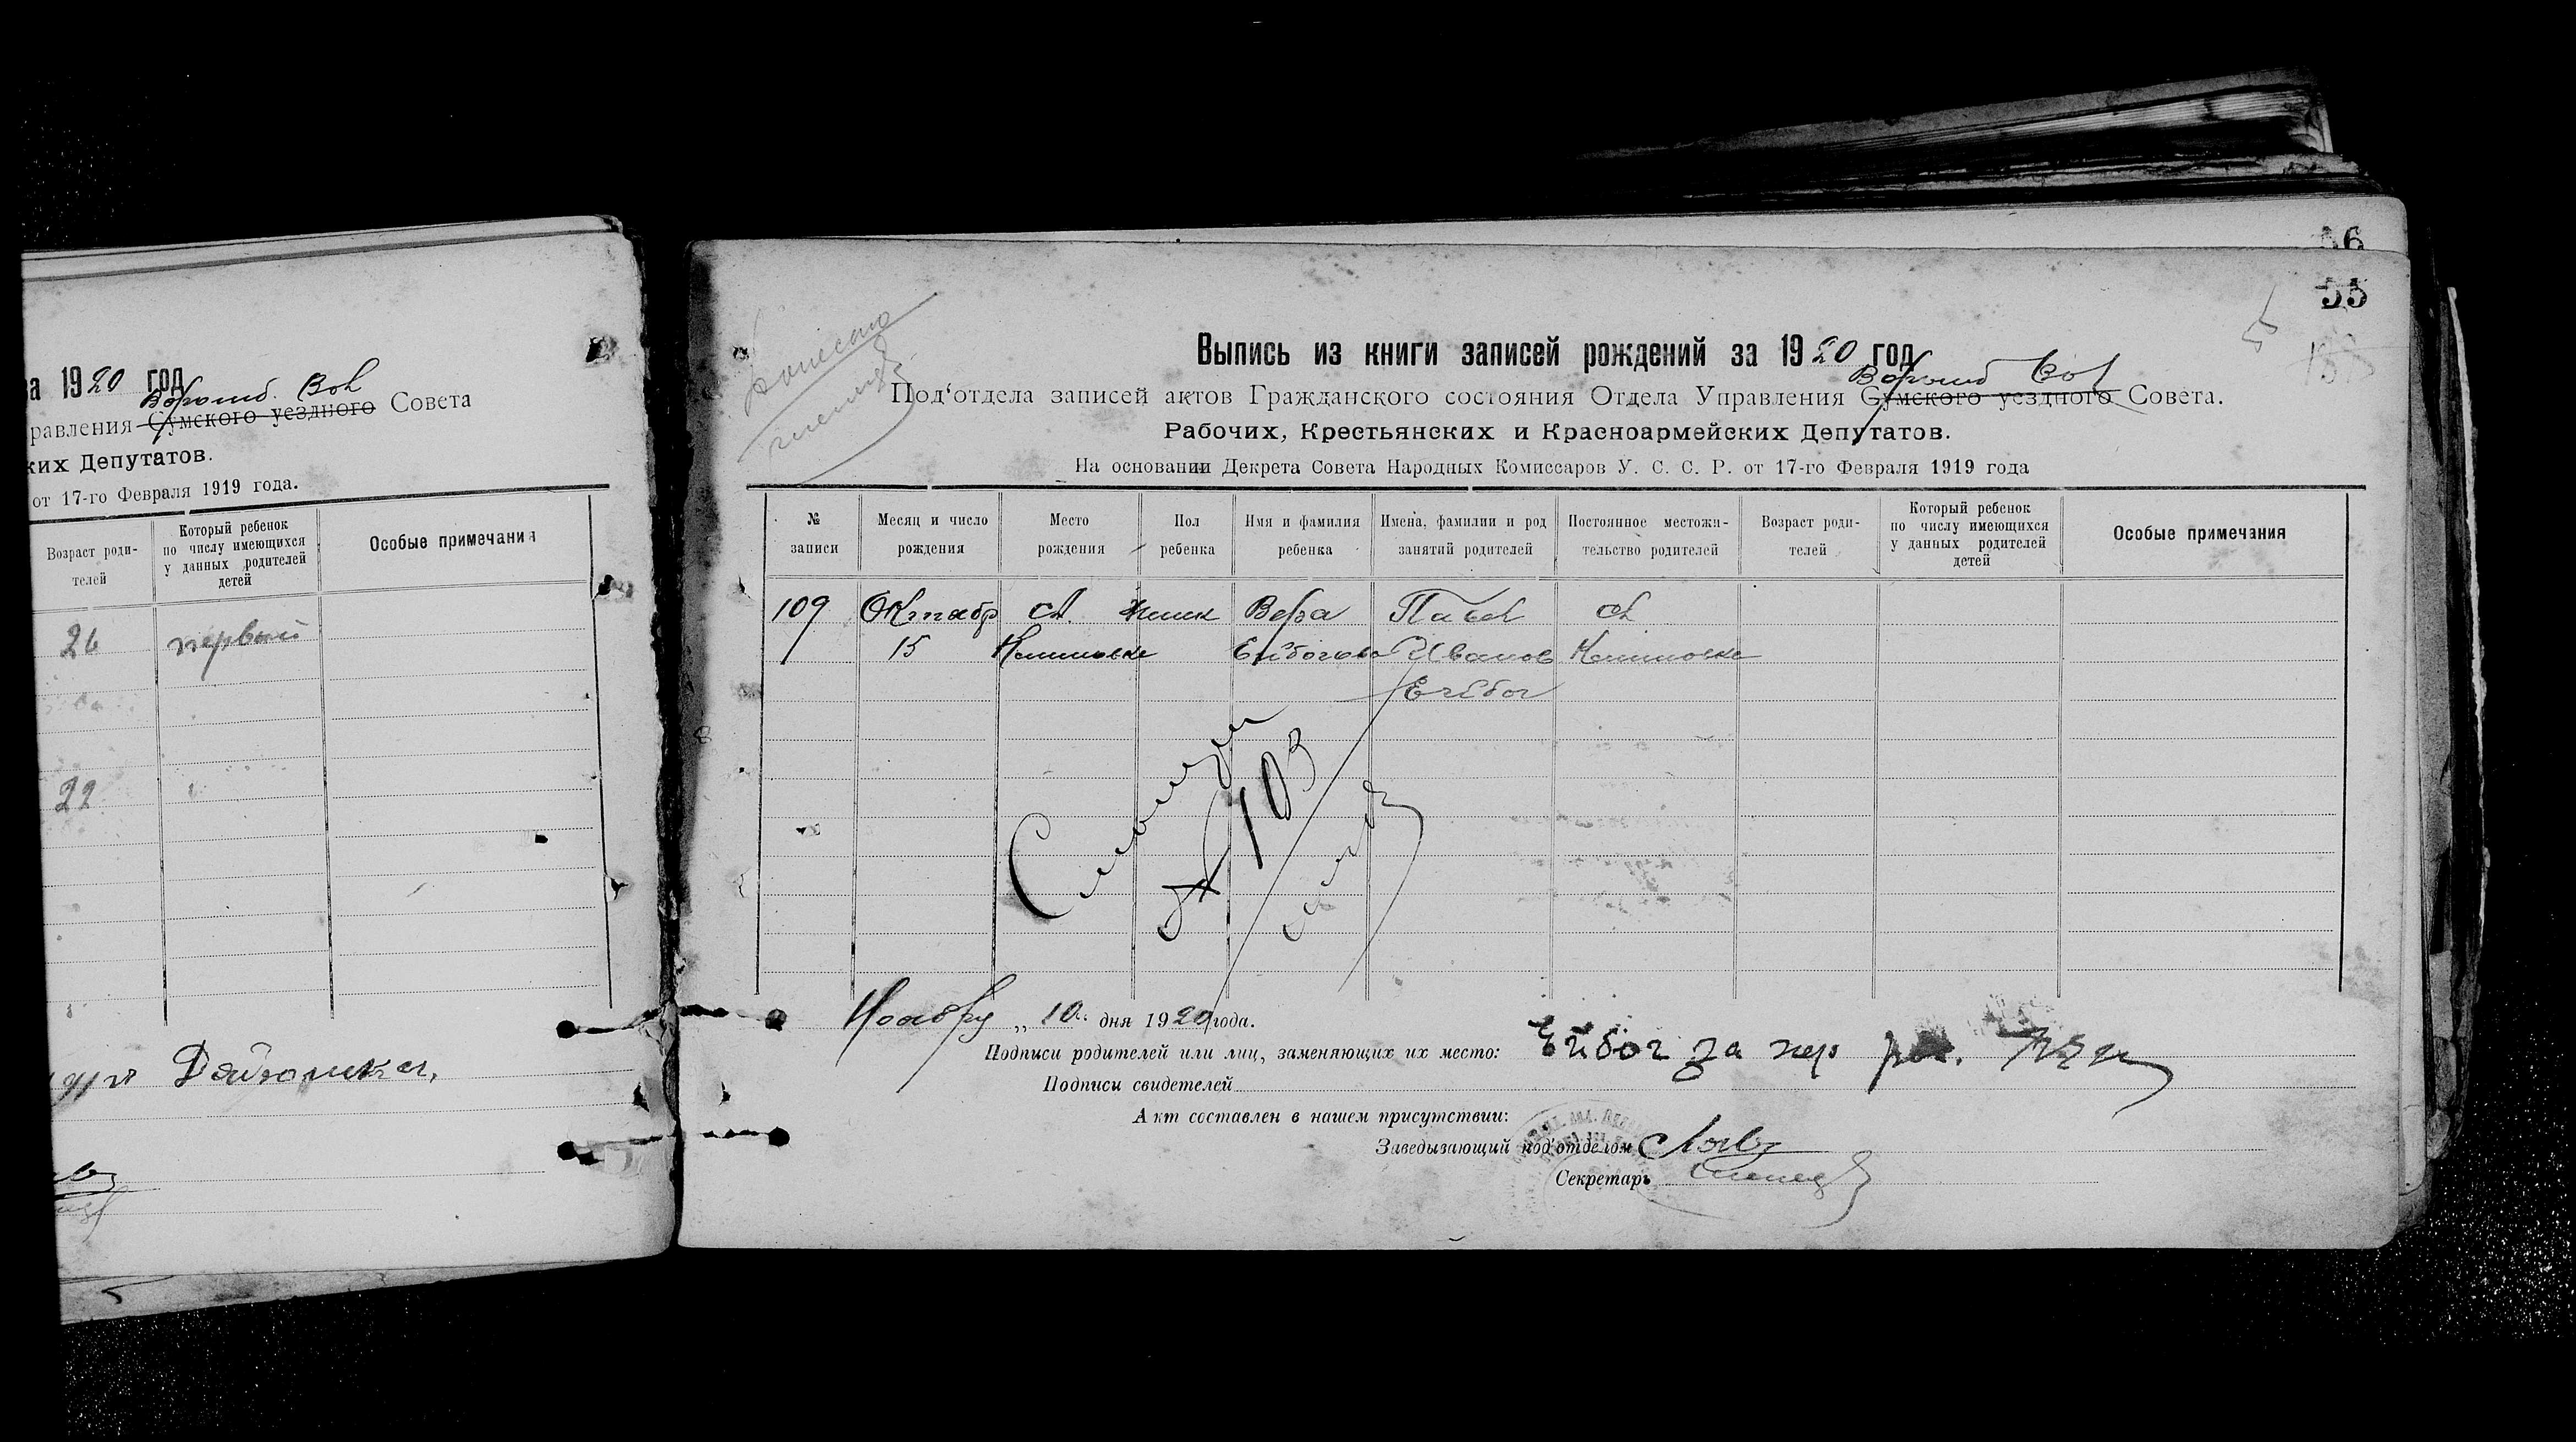 за 1920 год
Ворожб. Вол
равления Сумского уездного Совета
ких Депутатов.
от 17-го Февраля 1919 года.
Возраст роди-
телей
Который ребенок
по числу имеющихся
у данных родителей
детей
Особые примечания
26 первый
22
56
55
55
Выпись из книги записей рождений за 1920 год
Ворожб Вол
Под'отдела записей актов Гражданского состояния Отдела Управления Сумского уездного Совета.
Рабочих, Крестьянских и Красноармейских Депутатов.
На основании Декрета Совета Народных Комиссаров У. С. С. Р. от 17-го Февраля 1919 года
№
записи
Месяц и число
рождения
Место
рождения
Пол
ребенка
Имя и фамилия
ребенка
Имена, фамилии и род
занятий родителей
Постоянное местожи-
тельство родителей
Возраст роди-
телей
Который ребенок
по числу имеющихся
у данных родителей
детей
Особые примечания
109 Октябр сл. женск Вера Павел сл
15 Ейбогова Иванов
Ейбог
Смотри
№ 103
Ноября „10" дня 1920 года.
Подписи родителей или лиц, заменяющих их место: Ейбог за нер
Подписи свидетелей
Акт составлен в нашем присутствии:
Заведывающий под'отделом
Секретарь